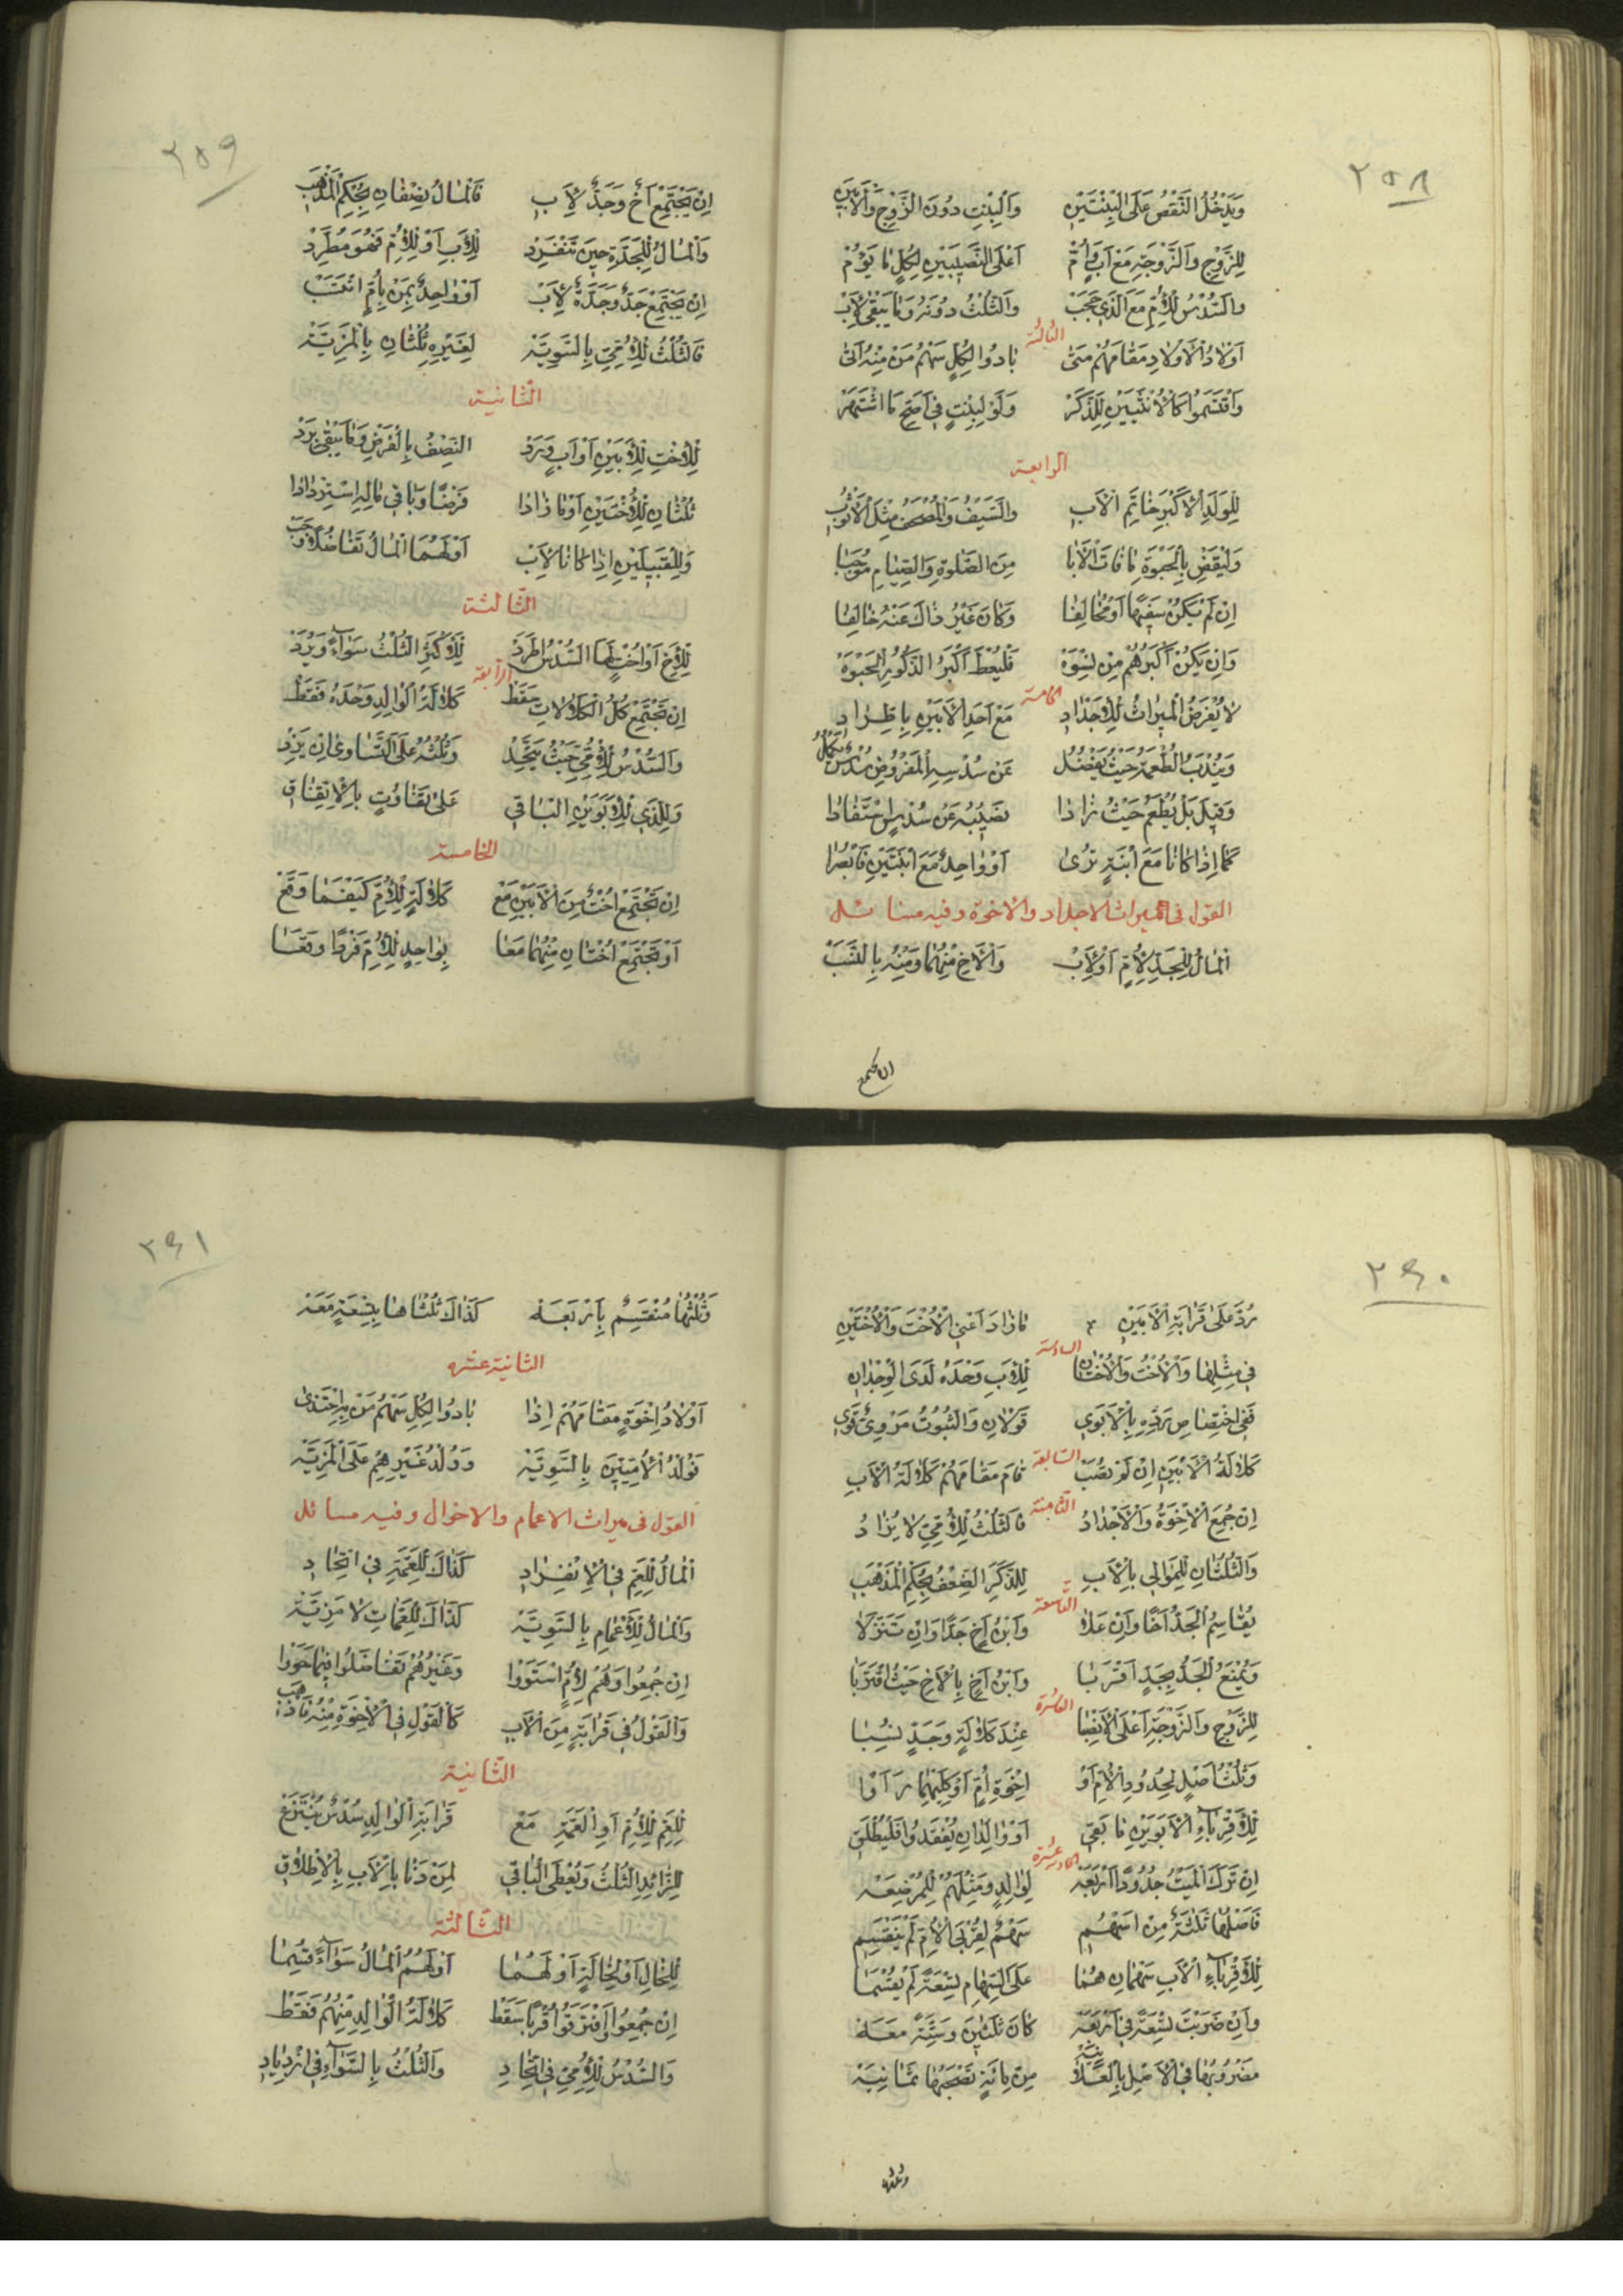 ٢٥٨
وَيَدْخُلُ النَّقْصُ عَلَى الْبِنْتَيْنِ وَالْبِنْتِ دُونَ الزَّوْجِ وَالْأَبَيْنِ
لِلزَّوْجِ وَالزَّوْجَةِ مَعَ أَبٍ وَأُمْ أَعْلَى النَّصِيبَيْنِ لِكُلٍّ مَا يَؤُمْ
وَالسُّدْسُ لِلْأُمِّ مَعَ الَّذِي حَجَبْ وَالثُّلْثُ دُونَهُ وَمَا يَبْقَى لِأَبْ
الثالثة
أَوْلَادُ الْأَوْلَادِ مَقَامَهُمْ مَتَى بَادُوا لِكُلٍّ سَهْمُ مَنْ مِنْهُ أَتَى
وَاقْتَسَمُوا كَالْأُنْثَيَيْنِ لِلذَّكَرْ وَلَوْ لِبِنْتٍ فِي أَصَحِّ مَا اشْتَهَرْ
الرابعة
لِلْوَلَدِ الْأَكْبَرِ خَاتَمُ الْأَبِ وَالسَّيْفُ وَالْمُصْحَفُ مِثْلَ الْأَثْوُبِ
وَلْيَقْضِ بِالْحَبْوَةِ مَا فَاتَ الْأَبَا مِنَ الصَّلٰوةِ وَالصِّيَامِ مُوجَبَا
إِنْ لَمْ يَكُنْ سَفِيهًا أَوْ مُخَالِفَا وَكَانَ غَيْرُ ذَاكَ عَنْهُ خَالِفَا
وَإِنْ يَكُنْ أَكْبَرُهُمْ مِنْ نِسْوَةْ فَلْيُعْطَ أَكْبَرُ الذُّكُورِ الْحَبْوَةْ
الخامسة
لَا يُفْرَضُ الْمِيرَاثُ لِلْأَجْدَادِ مَعَ أَحَدِ الْأَبَيْنِ بِاطِّرَادِ
وَيُنْدَبُ الطُّعْمَةُ حَيْثُ يَفْضُلُ عَنْ سُدْسِهِ الْمَفْرُوضِ سُدْسٌ يَكْمُلُ
وَقِيلَ بَلْ يُطْعِمُ حَيْثُ زَادَا نَصِيبُهُ عَنْ سُدْسٍ اسْتَفَادَا
كَمَا إِذَا كَانَا مَعَ ابْنَةٍ تُرَى أَوْ وَاحِدٌ مَعَ ابْنَتَيْنِ فَابْصُرَا
القول في ميراث الاجداد والاخوة وفيه مسائل
اَلْمَالُ لِلْجَدِّ لِأُمٍّ أَوْ لِأَبْ وَالْأَخِ مِنْهُمَا وَمِنْهُ بِالنَّسَبْ
ان يجتمع
٢٥٩
إِنْ يَجْتَمِعْ أَخٌ وَجَدٌّ لِأَبِ فَالْمَالُ نِصْفَانِ بِحُكْمِ الْمَذْهَبِ
وَالْمَالُ لِلْجَدَّةِ حِينَ تَنْفَرِدْ لِلْأَبِ أَوْ لِلْأُمِّ فَهْوَ مُطَّرِدْ
إِنْ يَجْتَمِعْ جَدٌّ وَجَدَّةٌ لِأَبْ أَوْ وَاحِدٌ بِمَنْ بِأُمٍّ انْتَسَبْ
فَالثُّلْثُ لِلْأُمِّيِّ بِالسَّوِيَّةْ لِغَيْرِهِ ثُلْثَانِ بِالْمَزِيَّةْ
الثانية
لِلْأُخْتِ لِلْأَبَيْنِ أَوْ أَبٍ وَرَدْ النِّصْفُ بِالْفَرْضِ وَمَا يَبْقَى يُرَدْ
ثُلْثَانِ لِلْأُخْتَيْنِ أَوْ مَا زَادَا فَرْضًا وَبَاقِي مَالِهِ اسْتِرْدَادَا
وَلِلْقَبِيلَيْنِ إِذَا كَانَا لِأَبْ أَوْ لَهُمَا الْمَالُ تَفَاضُلًا وَجَبْ
الثالثة
لِلْأَخِ أَوْ أُخْتٍ لَهَا السُّدْسُ اطَّرَدْ لِلْأَكْثَرِ الثُّلْثُ سَوَآءً وَيُرَدْ
الرابعة
إِنْ تَجْتَمِعْ كُلُّ الْكَلَالَاتِ سَقَطْ كَلَالَةُ الْوَالِدِ وَحْدَهُ فَقَطْ
وَالسُّدْسُ لِلْأُمِّيِّ حَيْثُ يَتَّحِدْ وَثُلْثُهُ عَلَى التَّسَاوِي إِنْ يَزِدْ
وَلِلَّذِي لِلْأَبَوَيْنِ الْبَاقِي عَلَى تَفَاوُتٍ بِالْإِتِّفَاقِ
الخامسة
إِنْ تَجْتَمِعْ أُخْتٌ مِنَ الْأَبَيْنِ مَعْ كَلَالَةٍ لِلْأُمِّ كَيْفَمَا وَقَعْ
أَوْ تَجْتَمِعْ أُخْتَانِ مِنْهُمَا مَعَا بِوَاحِدٍ لِلْأُمِّ فَرْدًا وَقَعَا
٢٦٠
رُدَّ عَلَى قَرَابَةِ الْأَبَيْنِ مَا زَادَ أَعْنِي الْأُخْتَ وَالْأُخْتَيْنِ
السادسة
فِي مِثْلِهَا وَالْأُخْتُ وَالْأُخْتَانِ لِلْأَبِ وَحْدَهُ لَدَى الْوِجْدَانِ
فَفِي اخْتِصَاصِ رَدِّهِ بِالْأَبَوِي قَوْلَانِ وَالثُّبُوتُ مَرْوِيٌّ قَوِي
السابعة
كَلَالَةُ الْأَبَيْنِ إِنْ لَمْ تُصَبْ قَامَ مَقَامَهُمْ كَلَالَةُ الْأَبِ
الثامنة
إِنْ جُمِعَ الْإِخْوَةُ وَالْأَجْدَادُ فَالثُّلْثُ لِلْأُمِّيِّ لَا يُزَادُ
وَالثُّلُثَانِ لِلْمُوَالِي بِالْأَبِ لِلذَّكَرِ الضِّعْفُ بِحُكْمِ الْمَذْهَبِ
التاسعة
يُقَاسِمُ الْجَدُّ أَخًا وَإِنْ عَلَا وَابْنُ أَخٍ جَدًّا وَإِنْ تَنَزَّلَا
وَيُمْنَعُ الْجَدُّ بِجَدٍّ أَقْرَبَا وَابْنُ أَخٍ بِالْأَخِ حَيْثُ اقْتَرَبَا
العاشرة
لِلزَّوْجِ وَالزَّوْجَةِ أَعْلَى الْأَنْصِبَا عِنْدَ كَلَالَةٍ وَجَدٍّ نُسِبَا
وَثُلْثُ أَصْلٍ لِجُدُودِ الْأُمِّ أَوْ إِخْوَةِ أُمٍّ أَوْ كِلَيْهِمَا رَأَوْا
لِلْأَقْرِبَآءِ الْأَبَوَيْنِ مَا بَقِي أَوْ وَالِدَانِ يُفْقَدُوا فَلْيُطْلَقِ
الحادية عشرة
إِنْ تَرَكَ الْمَيْتُ جُدُودًا أَرْبَعَهْ لِوَالِدٍ وَمِثْلَهُمْ لِلْمُرْضِعَهْ
فَأَصْلُهَا ثَلٰثَةٌ مِنْ أَسْهُمِ سَهْمٌ لِقُرْبَى الْأُمِّ لَمْ يَنْقَسِمِ
لِلْأَقْرِبَآءِ الْأَبِ سَهْمَانِ هُمَا عَلَى السِّهَامِ تِسْعَةً لَمْ يُقْسَمَا
وَإِنْ ضَرَبْتَ تِسْعَةً فِي أَرْبَعَهْ كَانَ ثَلٰثِينَ وَسِتَّةً مَعَهْ
مَضْرُوبُهَا فِي الْأَصْلِ بِالْعَلَانِيَهْ مِنْ مِائَةٍ تَصْحَبُهَا ثَمَانِيَهْ
وثلثها
٢٦١
وَثُلْثُهَا مُنْقَسِمٌ بِأَرْبَعَهْ كَذَاكَ ثُلْثَاهَا بِتِسْعَةٍ مَعَهْ
الثانية عشره
أَوْلَادُ إِخْوَةٍ مَقَامَهُمْ إِذَا بَادُوا لِكُلٍّ سَهْمُ مَنْ بِهِ احْتَذَى
فَوُلْدُ الْأُمِّيِّينَ بِالسَّوِيَّةْ وَوُلْدُ غَيْرِهِمْ عَلَى الْمَزِيَّةْ
القول في ميراث الاعمام والاخوال وفيه مسائل
اَلْمَالُ لِلْعَمِّ فِي الْإِنْفِرَادِ كَذَاكَ لِلْعَمَّةِ فِي اتِّحَادِ
وَالْمَالُ لِلْأَعْمَامِ بِالسَّوِيَّةْ كَذَاكَ لِلْعَمَّاتِ لَا مَزِيَّةْ
إِنْ جُمِعُوا وَهُمْ لِأُمٍّ اسْتَوَوْا وَغَيْرُهُمْ تَفَاضَلُوا فِيمَا حَوَوْا
وَالْقَوْلُ فِي قَرَابَةٍ مِنَ الْأَبِ كَالْقَوْلِ فِي الْإِخْوَةِ مِنْهُ فَاذْهَبِ
الثانية
لِلْعَمِّ لِلْأُمِّ أَوِ الْعَمَّةِ مَعْ قَرَابَةِ الْوَالِدِ سُدْسٌ يُنْتَزَعْ
لِلزَّائِدِ الثُّلْثُ وَيُعْطَى الْبَاقِي لِمَنْ دَنَا بِالْأَبِ بِالْإِطْلَاقِ
الثالثة
لِلْخَالِ أَوْ لِخَالَةٍ أَوْ لَهُمَا أَوْ لَهُمُ الْمَالُ سَوَآءً قُسِمَا
إِنْ جُمِعُوا وَافْتَرَقُوا قُرْبًا سَقَطْ كَلَالَةُ الْوَالِدِ مِنْهُمُ فَقَطْ
وَالسُّدْسُ لِلْأُمِّيِّ فِي اتِّحَادِ وَالثُّلْثُ بِالسَّوَآءِ فِي ازْدِيَادِ